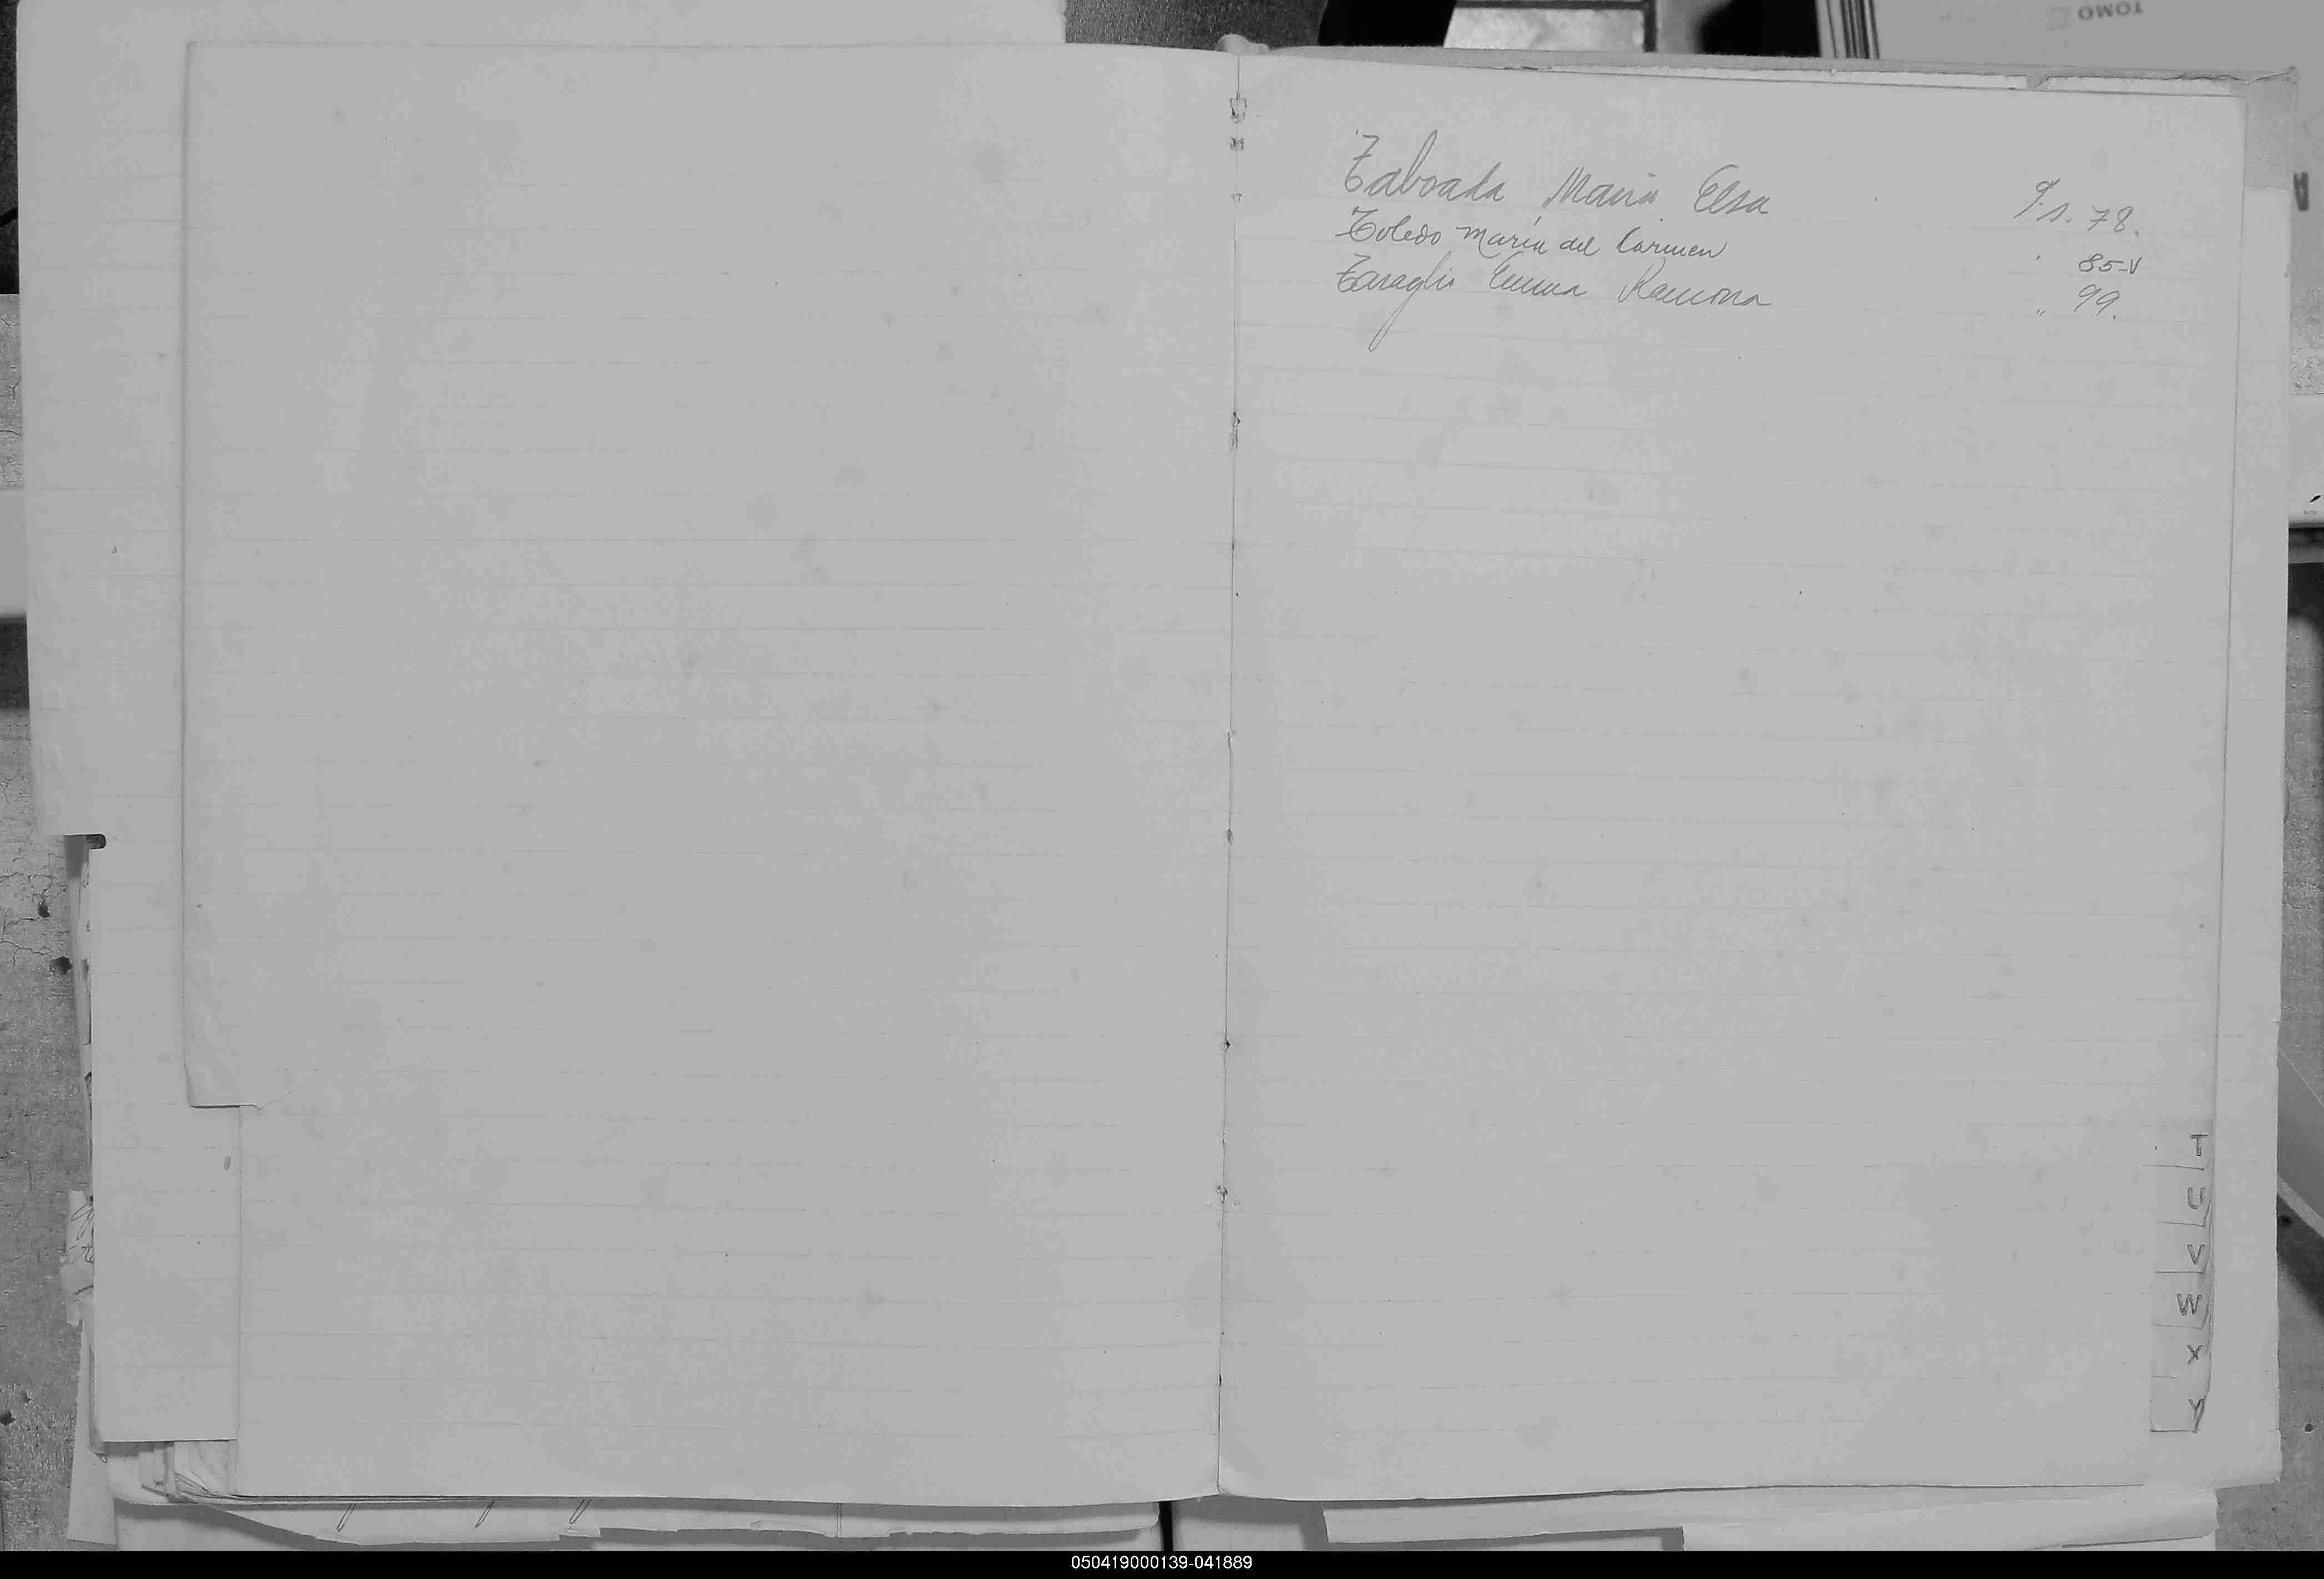 TOMO
Taboada Maria Elsa F.s. 78.
Toledo María del Carmen " 85-V
Taraglio Emma Ramona " 99.
T
U
V
W
X
Y
050419000139-041889